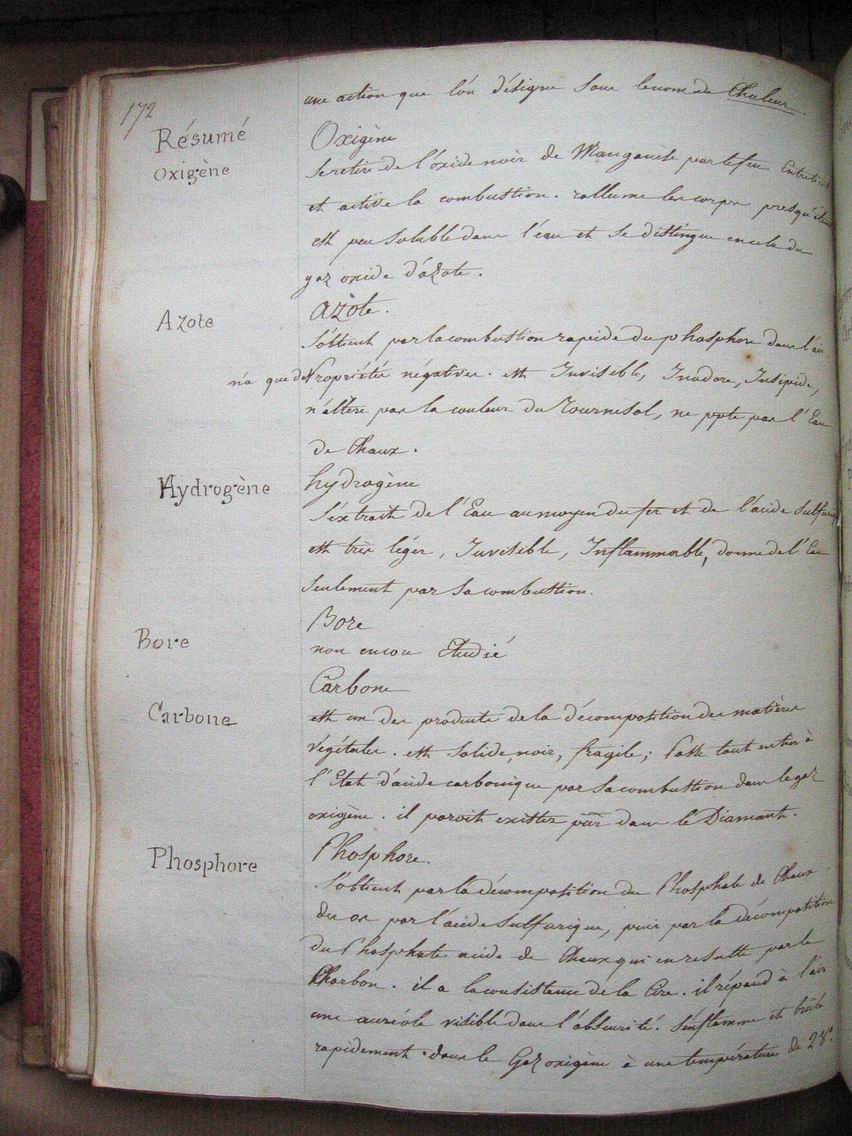 172
une action que l'on désigne sous le nom de Chaleur.
Résumé
Oxigène
Oxigène
Se retire de l'oxide noir de Manganèse par le feu. Entretient
et active la combustion. rallume les corps presqu'éteints
est peu soluble dans l'eau et se distingue en cela du
gaz oxide d'azote.
Azote
Azote.
S'obtient par la combustion rapide du phosphore dans l'air.
n'a que des Propriétés négatives. est Invisible, Inodore, Insipide,
n'altère pas la couleur du Tournesol, ne ppte pas l'Eau
de Chaux.
Hydrogène
hydrogène
S'extrait de l'Eau au moyen du fer et de l'acide Sulfurique
est très léger, Invisible, Inflammable, donne de l'Eau
seulement par sa combustion.
Bore
Bore
non encore Etudié
Carbone
Carbone
est un des produits de la décomposition des matières
végétales. est solide, noir, fragile; Passe tout entier à
l'Etat d'acide carbonique par sa combustion dans le gaz
oxigène. il paroit exister pur dans le Diamant.
Phosphore
Phosphore.
S'obtient par la décomposition du Phosphate de Chaux
des os par l'acide Sulfurique, puis par la décomposition
du Phosphate acide de Chaux qui en resulte par le
Charbon. il a la consistance de la Cire. il répand à l'air
une auréole visible dans l'obscurité. S'enflamme et brûle
rapidement dans le Gaz oxigène à une température de 28°.